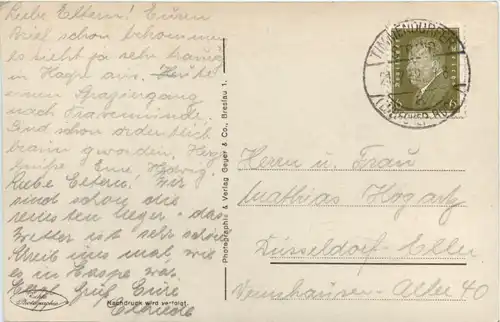 Liebe Eltern! Euren
Brief schon bekommen
es sieht ja sehr traurig
in Hagen aus. Heute
einen Spaziergang
nach Travemünde.
Sind schon ordentlich
braun geworden. Herzl.
Grüße Eure Hedwig.
Liebe Eltern! Wir
sind schon die
reinsten Neger - das
Wetter ist sehr schön
Schreib uns mal, wie
es in Haspe war.
Herzl. Grüß Eure
Photographie & Verlag Geyer & Co., Breslau 1.
Echte Photographie
Nachdruck wird verfolgt.
TIMMENDORFER
Herrn u. Frau
Mathias
Düsseldorf-Eller
Allee 40